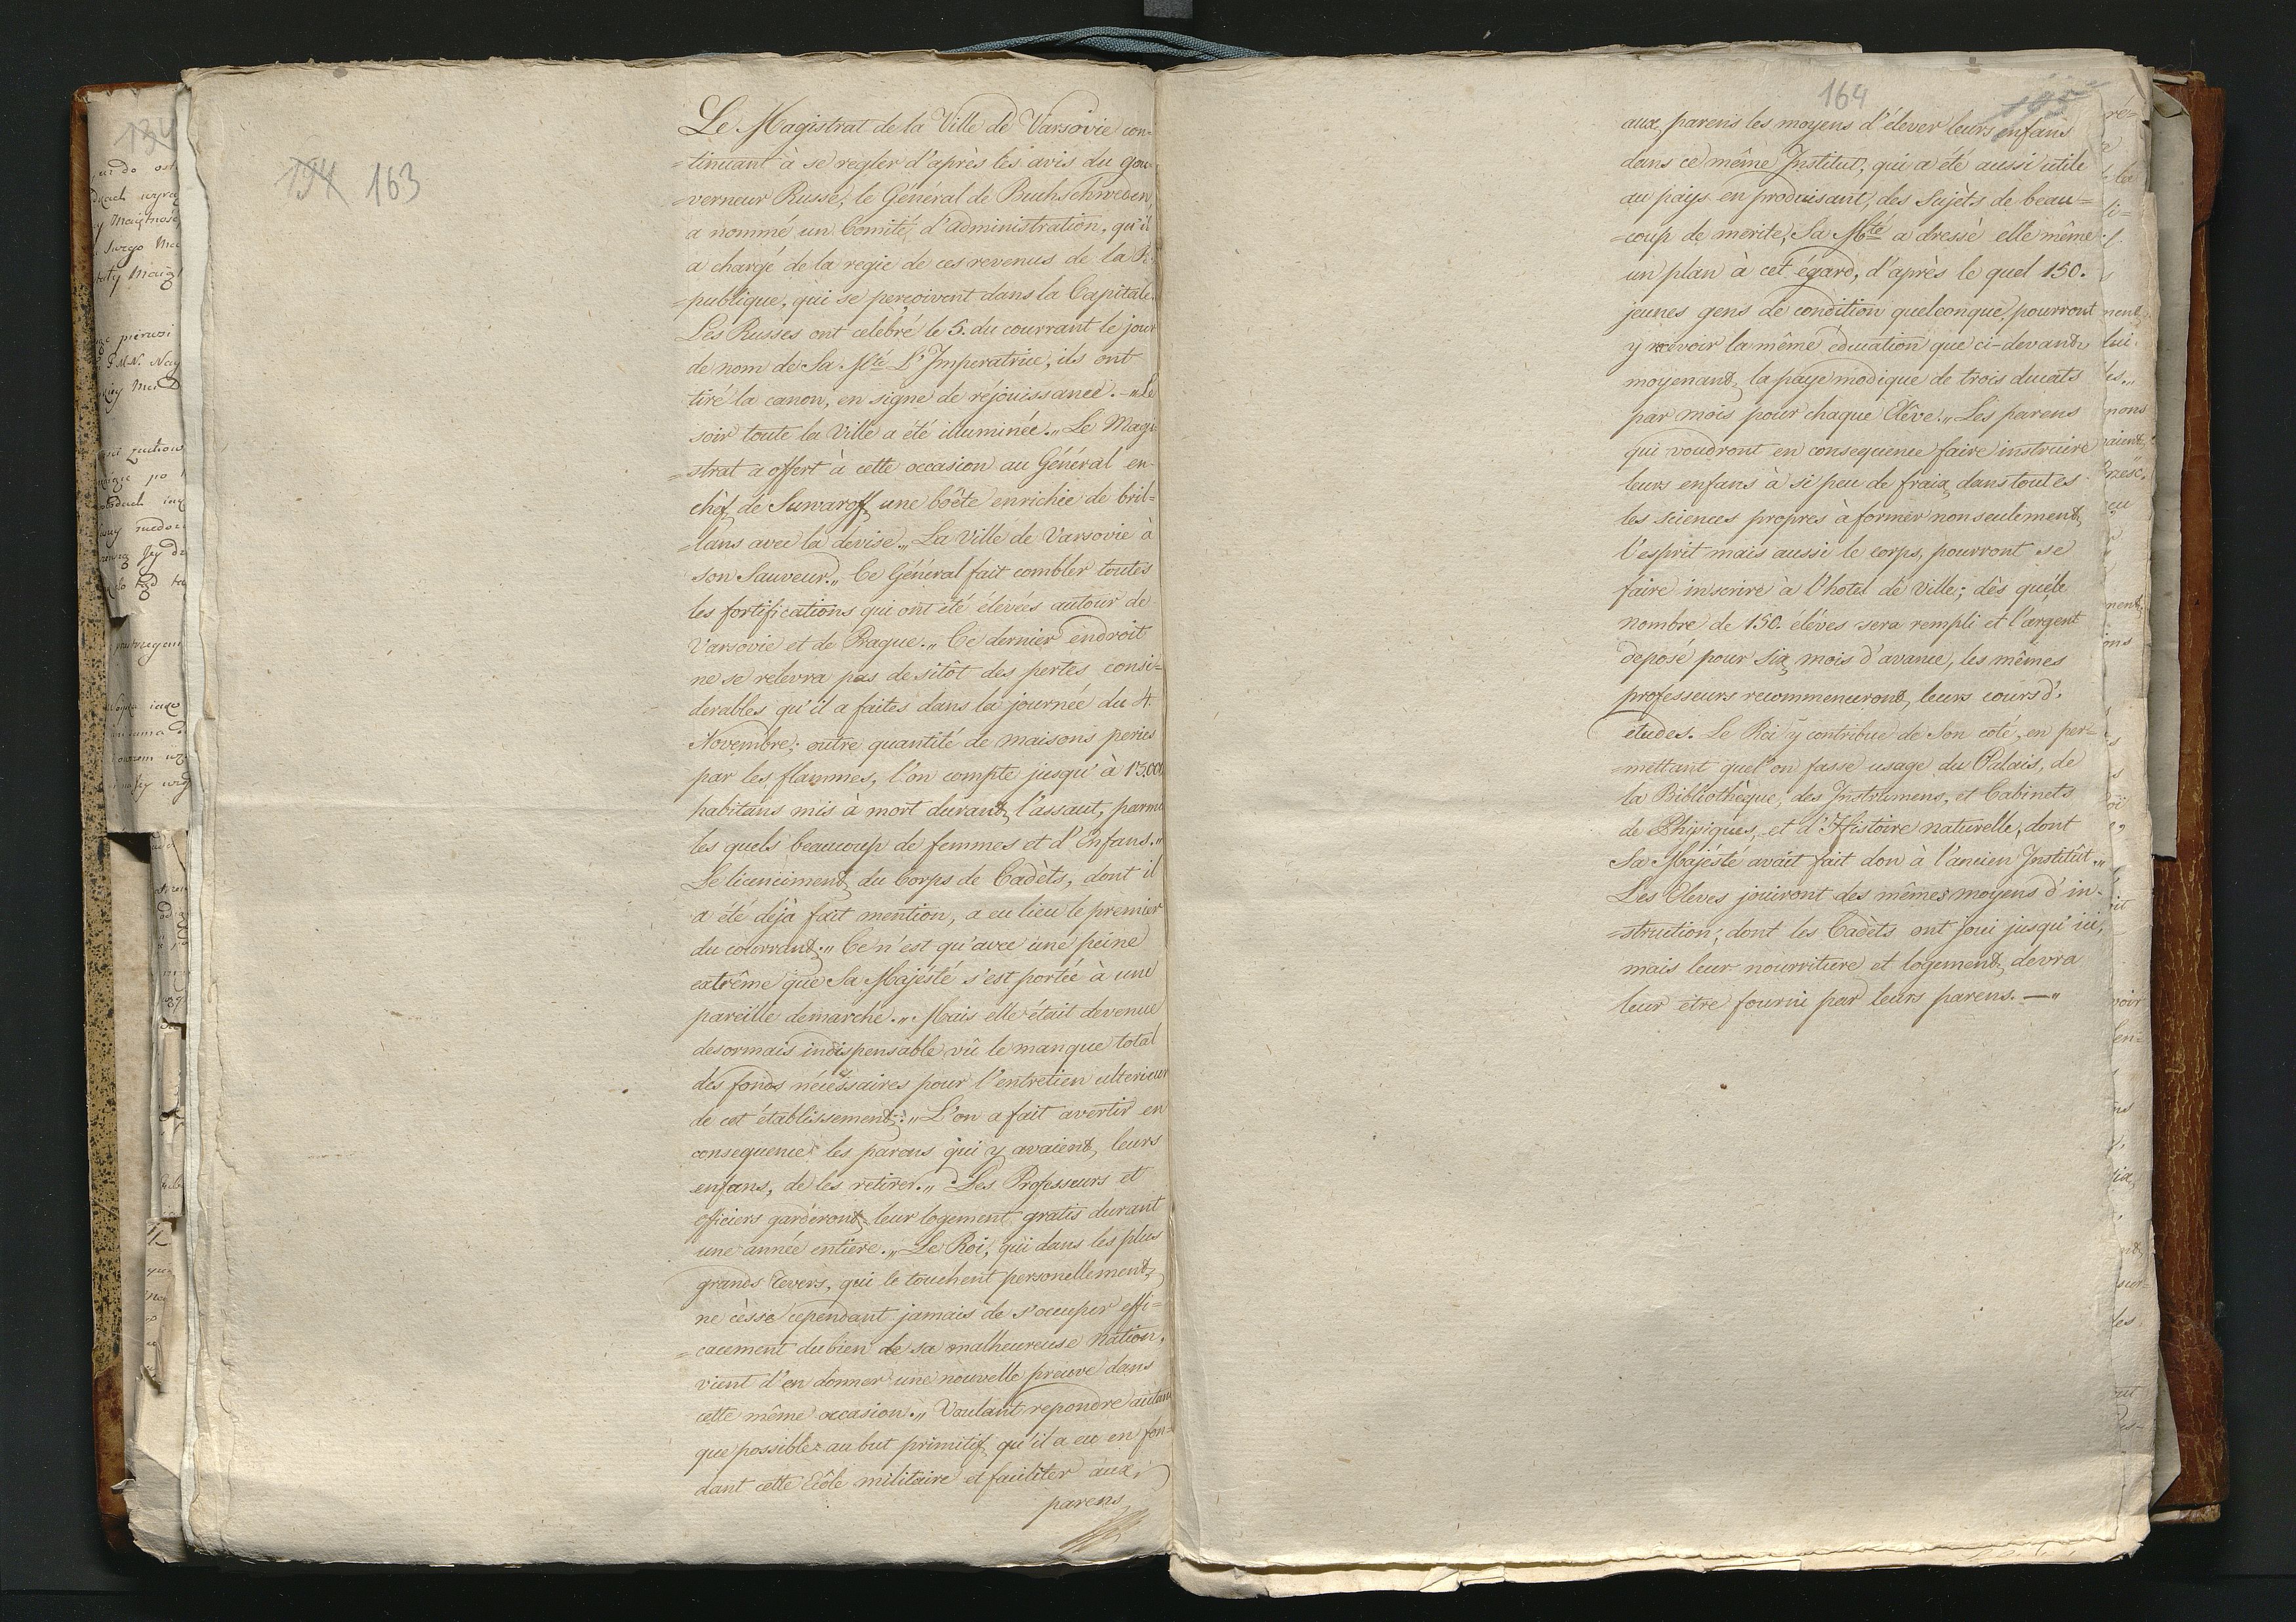 154 163
Le Magistrat de la Ville de Varsovie con-
=tinuant à se regler d'après les avis du gou-
=verneur Russe, le Général de Buchschweven,
a nommé un Comité d'administration, qu'il
a chargé de la regie de ces revenus de la Re-
=publique, qui se percoivent dans la Capitale.
Les Russes ont celebré le 5. du courrant le jour
de nom de Sa Mté L'Imperatrice, ils ont
tiré la canon, en signe de réjouissance. — „ Le
soir toute la Ville a été illuminée. „ Le Magi-
=strat a offert à cette occasion au Général en-
chèf de Suwaroff une boête enrichie de bril-
=lans avec la devise „ La Ville de Varsovie à
son Sauveur. „ Ce Général fait combler toutes
les fortifications qui ont été élevées autour de
Varsovie et de Prague. „ Ce dernier endroit
ne se relevra pas de sitôt des pertes consi=
derables qu'il a faites dans la journée du 4.
Novembre; outre quantité de maisons peries
par les flammes, l'on compte jusqu'à 15,000
habitans mis à mort durant l'assaut, parmi
les quels beaucoup de femmes et d'Enfans. „
Le licenciment du Corps de Cadèts, dont il
a été dejà fait mention, a eu lieu le premier
du courrant. „ Ce n'est qu'avec une peine
extrême que Sa Majésté s'est portée à une
pareille demarche. „ Mais elle était devenue
desormais indispensable vû le manque total
des fonds nécéssaires pour l'entretien ulterieur
de cet établissement. „ L'on a fait avertir en
consequence les parens qui y avaient leurs
enfans, de les retirer. „ Les Professeurs et
officiers garderont leur logement gratis durant
une année entiere. „ Le Roi, qui dans les plus
grands revers, qui le touchent personellement,
ne cèsse cependant jamais de s'occuper effi=
=cacement du bien de sa malheureuse Nation,
vient d'en donner une nouvelle preuve dans
cette même occasion. „ Voulant repondre autant
que possible au but primitif qu'il a eu en fon=
dant cette Ecôle militaire et faciliter aux
parens
164
aux parens les moyens d'élever leurs enfans
dans ce même Institut, qui a été aussi utile
au pays en produisant des Sujèts de beau=
=coup de merite, Sa Mté a dressè elle même
un plan à cet égard, d'après le quel 150.
jeunes gens de condition quelconque pourront
y recevoir la même éducation que ci-devant
moyenant la paye modique de trois ducats
par mois pour chaque Elêve. „ Les parens
qui voudront en consequence faire instruire
leurs enfans à si peu de fraix dans toutes
les sciences propres à former non seulement
l'esprit mais aussi le corps, pourront se
faire inscrire à l'hotel de Ville; dès que le
nombre de 150. élèves sera rempli et l'argent
deposé pour six mois d'avance, les mêmes
professeurs recommenceront leurs cours d'
études. Le Roi y contribue de Son coté, en per=
=mettant que l'on fasse usage du Palais, de
la Bibliothèque, des Instrumens, et Cabinets
de Phisiques, et d'Histoire naturelle, dont
Sa Majésté avait fait don à l'ancien Institût. „
Les Eleves jouiront des mêmes moyens d'in-
=struction, dont les Cadèts ont joui jusqu'ici,
mais leur nourriture et logement devra
leur etre fourni par leurs parens. — „